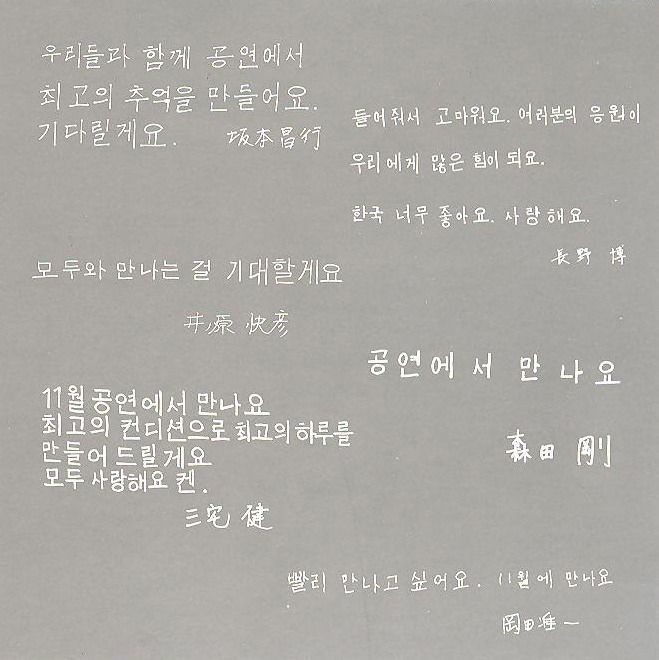 우리들과 함께 공연에서
최고의 추억을 만들어요.
기다릴게요. 坂本昌行
들어줘서 고마워요. 여러분의 응원이
우리에게 많은 힘이 되요.
한국 너무 좋아요. 사랑해요.
長野 博
모두와 만나는 걸 기대할게요
井ノ原 快彦
공연에서 만나요
森田 剛
11월 공연에서 만나요
최고의 컨디션으로 최고의 하루를
만들어 드릴게요
모두 사랑해요 켄.
三宅 健
빨리 만나고 싶어요. 11월에 만나요
岡田准一